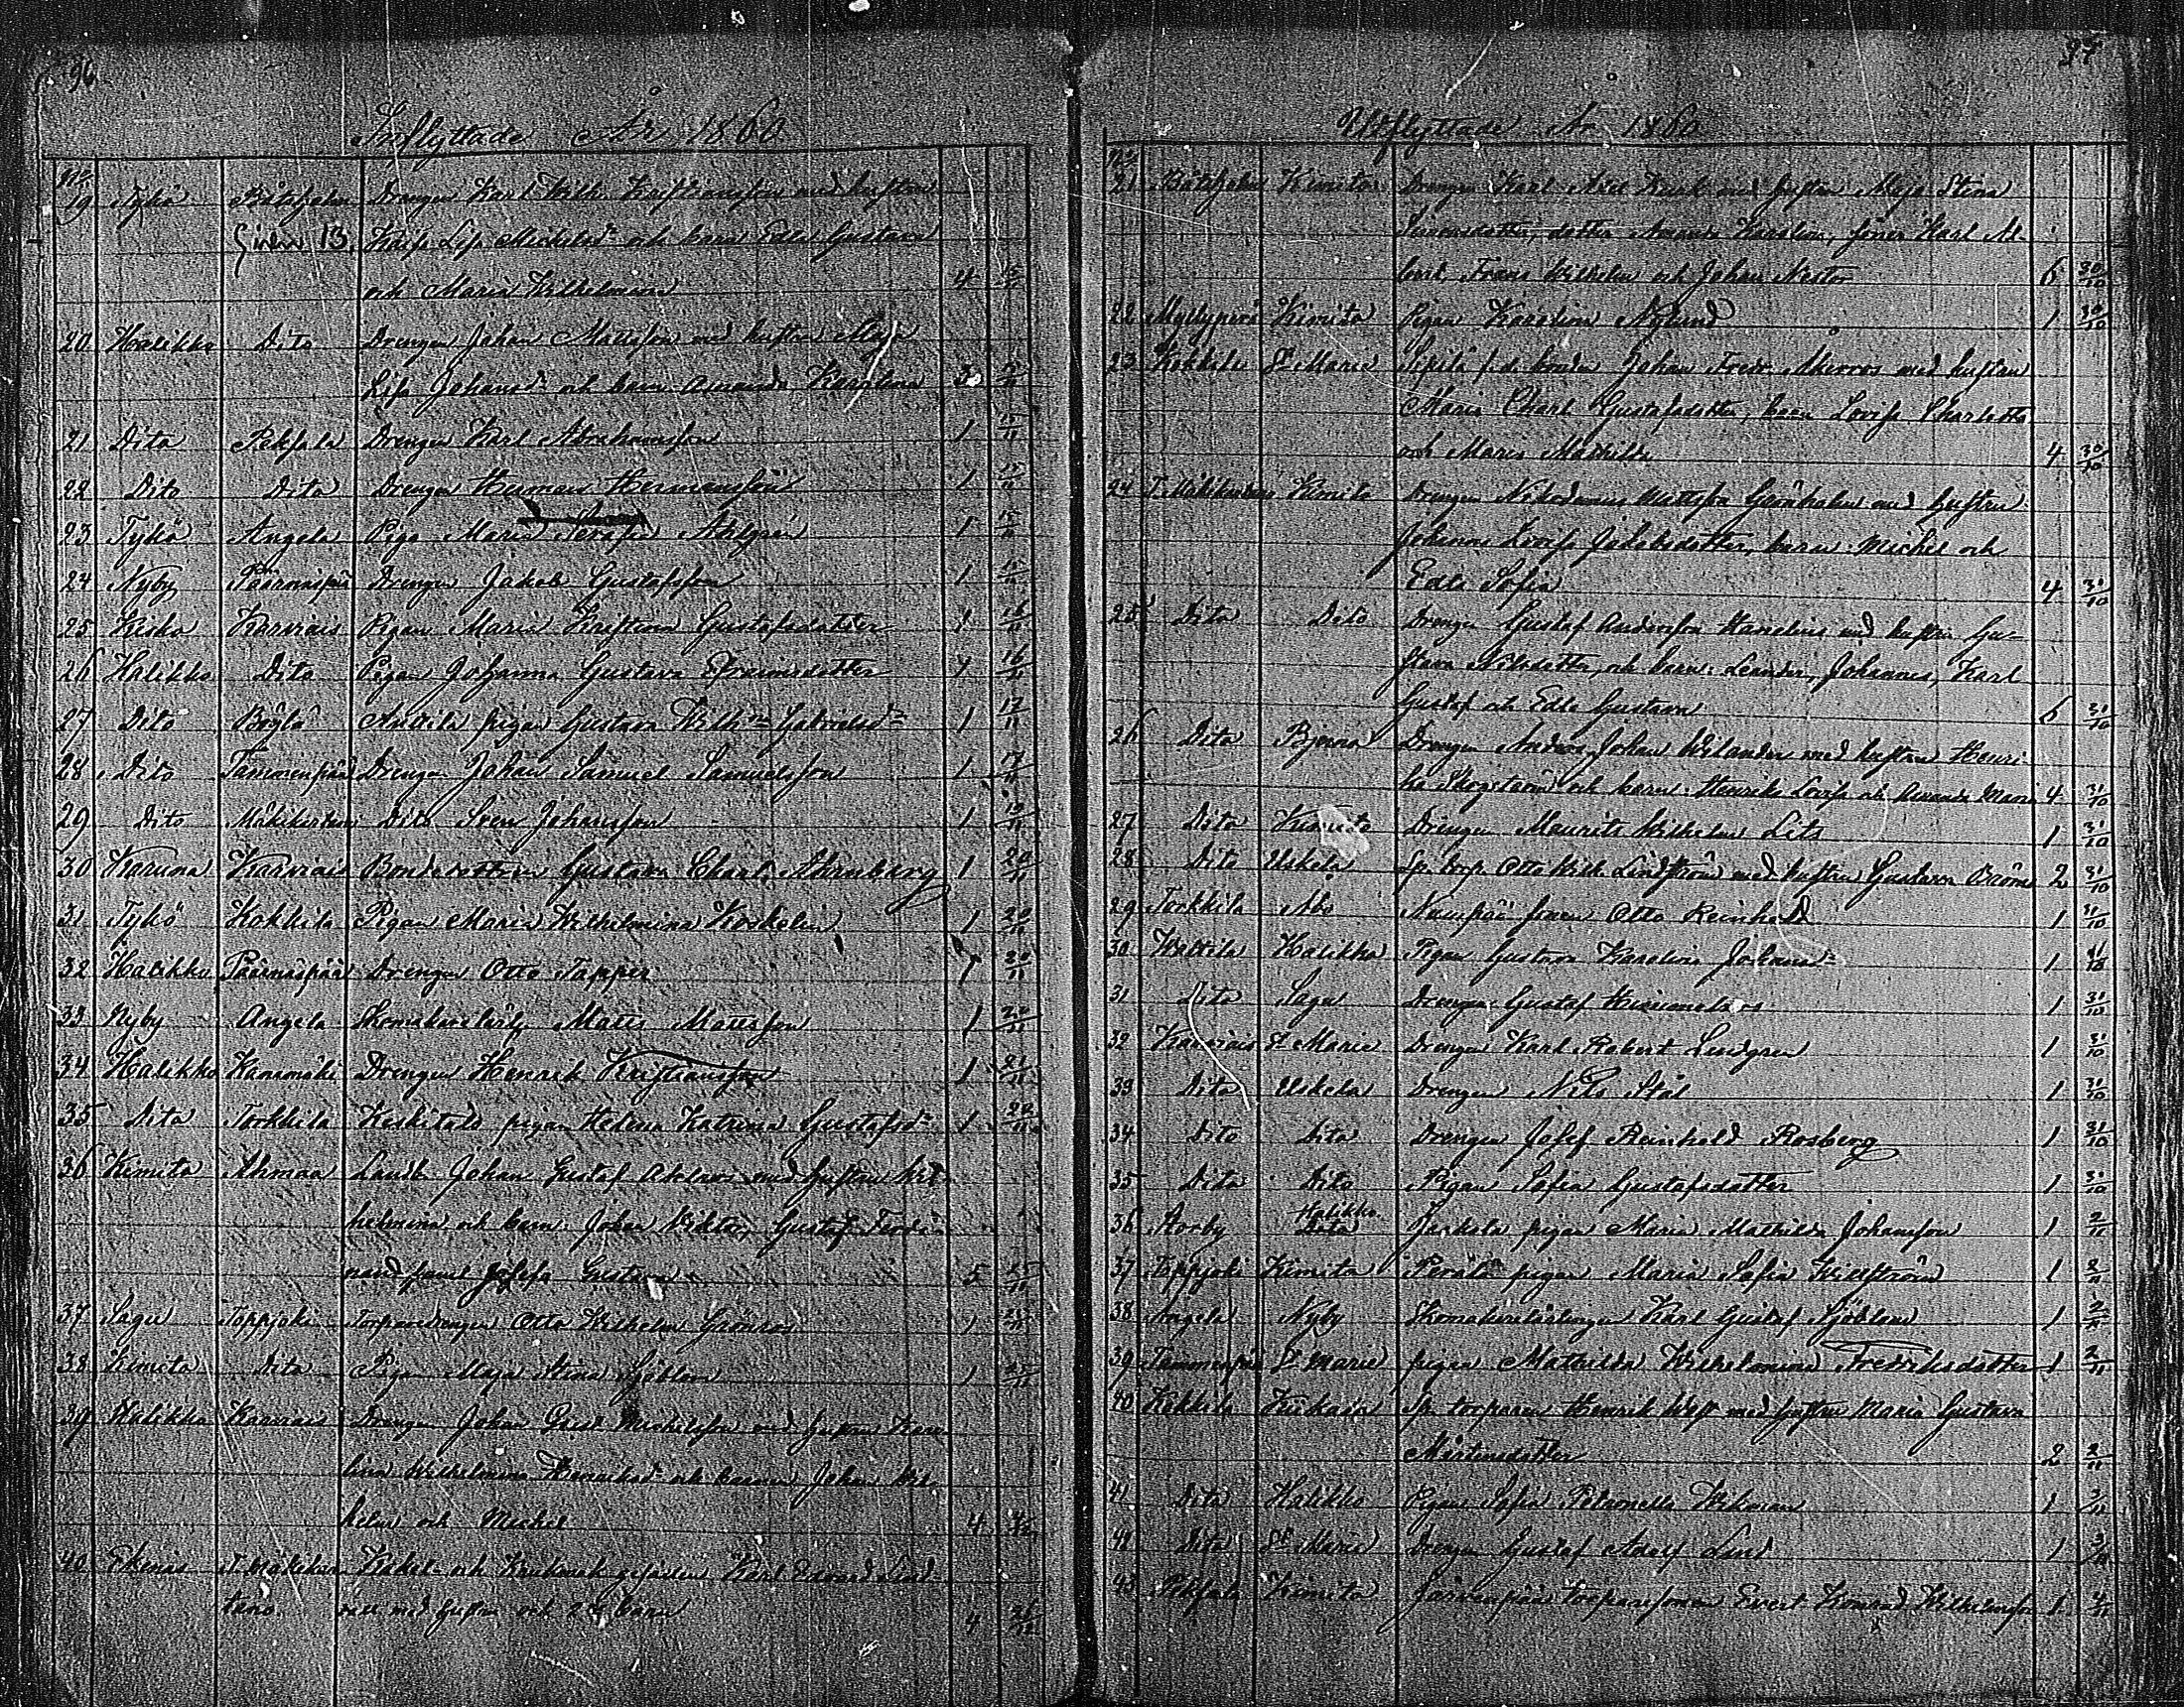 96
Inflyttade År 1860
No
19 Tykö Båtsholm Drengen Karl Wilh. Kristiansson med hustrun
13. Kajsa Lisa Michelsd:r och barn Edla Gustava
och Maria Wilhelmina 4 15/11
20 Halikko Dito Drengen Johan Mattsson med hustrun Maja
Lisa Johansd:r och barn Amanda Karolina 3
21 Dito Pekjala Drengen Karl Abrahamsson 1 15/11
22 Dito Dito Drengen Herman Hermansson 1 15/11
23 Tykö Angela Piga Maria Serafia Ahlgrén 1 15/11
24 Nyby Drengen Jakob Gustafsson 1 15/11
25 Kisko Karviais Pigan Maria Kristina Gustafsdotter 1 16/11
26 Halikko Dito Pigan Johanna Gustava Efraimsdotter 1 16/11
27 Dito Böylä Anttila pigan Gustava Wilh:na Gabrielsd:r 1 17/11
28 Dito Tammenpää Drengen Johan Samuel Samuelsson 1 17/11
29 Dito Mäkikertano Dito Sven Johansson 1 19/11
30 Karuna Karviais Bondedottren Gustava Charl. Ahrnberg 1 20/11
31 Tykö Kokkila Pigan Maria Wilhelmina Koskelin 1 20/11
32 Halikko Päärnäspää Drengen Otto Tapper 1 20/11
33 Nyby Angela Skomakarelärl. Matts Mattsson 1 20/11
34 Halikko Drengen Henrik Kristiansson 1 21/11
35 Dito Torkkila Keskitalo pigan Helena Katrina Gustafsd:r 1 22/11
36 Kimito Ahmaa Landb. Johan Gustaf med hustrun Wil-
helmina och barn: Johan Viktor, Gustaf Ferdi-
nand samt Josefa Gustava 5 25/11
37 Sagu Toppjoki Torparedrengen Otto Wilhelm Grönros 1
38 Kimito Dito Pigan Maja Stina Sjöblom 1
39 Halikko Karviais Drengen Johan Gust. Michelsson med hustrun Karo-
lina Wilhelmina Henriksd:r och barnen Johan Wil-
helm och Michel 4
40 Ekenäs Kakel- och Krukmak. gesällen Karl Edvard Lind-
med hustru och 2 barn 4
97
Utflyttade År 1860
No
21 Båtsholm Kimito Drengen Karl Axel med hustrun Maja Stina
Simonsdotter, dotter Amanda Karolina, söner Karl Al-
bert, Frans Wilhelm och Johan Nestor 6 30/10
22 Myllyperä Kimito Pigan Karolina Nylund 1 30/10
23 Kokkila S:t Marie Seppälä f.d. bonden Johan Fredr. Åkerros med hustrun
Maria Charl. Gustafsdotter, barn Lovisa Charlotta
och Maria Mathilda 4 30/10
24 Kimito Drengen Nikodemus Mattsson Grönholm med hustru
Johanna Lovisa Jakobsdotter, barn: Michel och
Edla Sofia 4 31/10
25 Dito Dito Drengen Gustaf Andersson Hasselius med hustrun Gu-
stava Nilsdotter, och barn: Leander, Johannes, Karl
Gustaf och Edla Gustava 6 31/10
26 Dito Bjerno Drengen Anders Johan Welander med hustrun Henri-
ka Skogström och barn: Henrika Lovisa och Amanda Maria 4 31/10
27 Dito Kimito Drengen Maurits Wilhelm Lits 1 31/10
28 Dito Uskela Sp. torp. Otto Wilh. Lindström med hustru Gustava Ström 2 31/10
29 Torkkila Åbo Numpää sonen Otto Reinhold 1 31/10
30 Wättilä Halikko Pigan Gustava Karolina Johansd:r 1 31/10
31 Dito Sagu Drengen Gustaf 1 31/10
32 Karviais S:t Marie Drengen Karl Robert Lindgren 1 31/10
33 Dito Uskela Drengen Nils Stål 1 31/10
34 Dito Dito Drengen Josef Reinhold Rosberg 1 31/10
35 Dito Dito Pigan Sofia Gustafsdotter 1 31/10
36 Storby Halikko Dito Jaskola pigan Maria Mathilda Johansson 1 2/11
37 Toppjoki Kimito Perälä pigan Maria Sofia Willström 1 2/11
38 Angela Nyby Skomakarelärlingen Karl Gustaf Sjöblom 1 2/11
39 Tammenpää S:t Marie pigan Mathilda Wilhelmina Fredriksdotter 1 2/11
40 Kokkila Kiikala Sp. torparen Henrik Wess med hustru Maria Gustava
Mårtensdotter 2 2/11
41 Dito Halikko Pigan Sofia Petronella Wikman 1 3/11
42 Dito S:t Marie Drengen Gustaf Adolf Lind 1 3/11
43 Pekjala Kimito Järvenpää torparesonen Evert Konrad Wilhelmsson 1 4/11